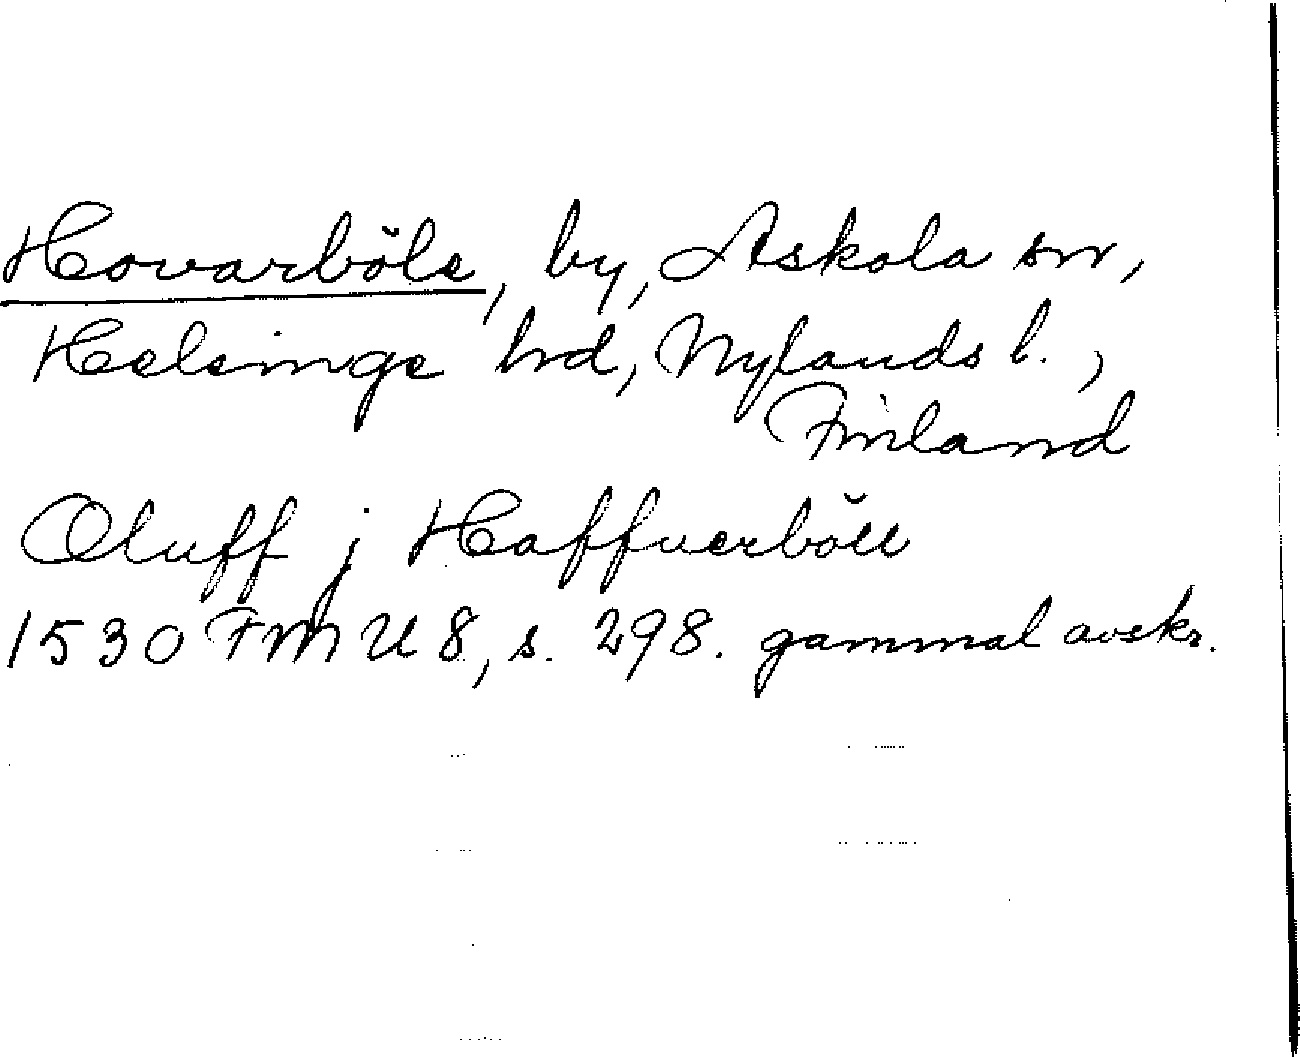 Hovarböle, by, Askola sn,
Helsinge hrd, Nylands l.,
Finland
Oluff j Haffuerböll
1530 FMU 8, s. 298. gammal avskr.